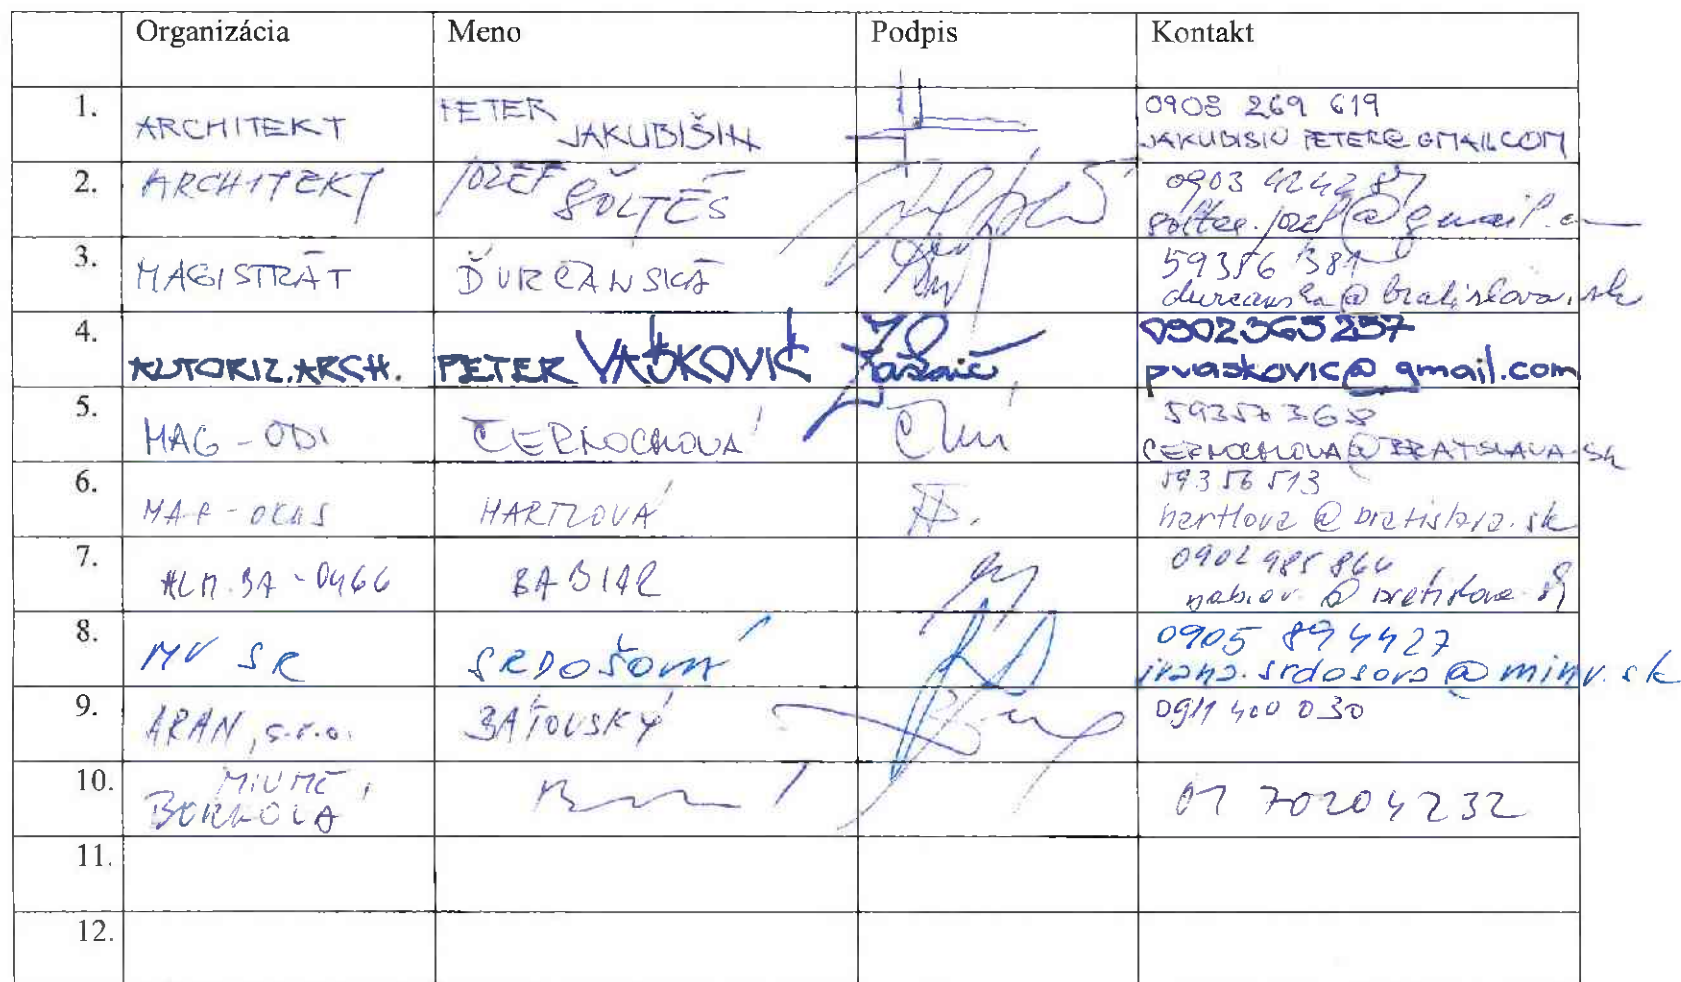 Organizácia Meno Podpis Kontakt
1. ARCHITEKT PETER JAKUBIŠIN 0908 269 619
JAKUBISIN PETER@GMAIL.COM
2. ARCHITEKT JOZEF ŠOLTÉS 0903 424287
soltes.jozef@gmail.
3. MAGISTRÁT ĎURČANSKÁ 59356 381
durcanska@bratislava.sk
4. AUTORIZ.ARCH. PETER VAŠKOVIČ 0902365257
pvaskovic@gmail.com
5. MAG - ODI ČERNOCHOVÁ 59357368
CERNOCHOVA@BRATISLAVA.sk
6. HARTLOVÁ 59356513
hartlova@bratislava.sk
7. BABIAR 0902 985 864
8. MV SR SRDOŠOVÁ 0905 894427
ivana.srdosova@minv.sk
9. ARAN, s.r.o. BAŤOVSKÝ 0911 400 030
10. 02 70204232
11.
12.